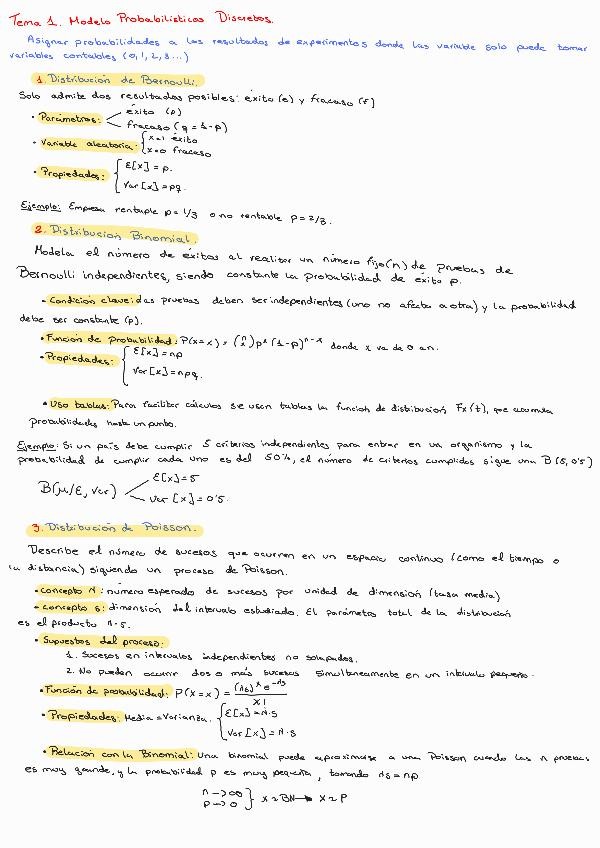 Tema 1. Modelo Probabilísticos Discretos.
Asignar probabilidades a los resultados de experimentos donde las variable solo puede tomar
variables contables (0,1,2,3...)
1. Distribución de Bernoulli.
Solo admite dos resultados posibles: éxito (e) y fracaso (f)
• Parámetros: éxito (p)
fracaso (q = 1-p)
• Variable aleatoria: x=1 éxito
x=0 fracaso
• Propiedades: E[x] = p.
Var [x] = pq.
Ejemplo: Empresa rentable p= 1/3 o no rentable p = 2/3.
2. Distribución Binomial.
Modela el número de éxitos al realizar un número fijo(n) de pruebas de
Bernoulli independientes, siendo constante la probabilidad de éxito p.
• Condición clave: las pruebas deben ser independientes (uno no afecta a otra) y la probabilidad
debe ser constante (p).
• Función de probabilidad: P(x=x) = (n x) p^x (1-p)^n-x donde x va de 0 a n.
• Propiedades: E[x] = np
Var [x] = npq.
• Uso tablas: Para facilitar cálculos se usan tablas la función de distribución Fx(t), que acumula
probabilidades hasta un punto.
Ejemplo: Si un país debe cumplir 5 criterios independientes para entrar en un organismo y la
probabilidad de cumplir cada uno es del 50%, el número de criterios cumplidos sigue una B(5, 0'5)
B(μ/E, Var) E[x] = 5
Var [x] = 0'5.
3. Distribución de Poisson.
Describe el número de sucesos que ocurren en un espacio continuo (como el tiempo o
la distancia) siguiendo un proceso de Poisson.
• concepto λ: número esperado de sucesos por unidad de dimensión (tasa media)
• concepto s: dimensión del intervalo estudiado. El parámetros total de la distribución
es el producto λ·s.
• Supuestos del proceso:
1. Sucesos en intervalos independientes no solapados.
2. No pueden ocurrir dos o más sucesos simultáneamente en un intervalo pequeño.
• Función de probabilidad: P(x=x) = (λs)^x e^-λs / x!
• Propiedades: Media = Varianza. E[x] = λ·s
Var [x] = λ·s
• Relación con la Binomial: Una binomial puede aproximarse a una Poisson cuando las n pruebas
es muy grande, y la probabilidad p es muy pequeña, tomando λs = np
n → ∞
p → 0 x≈BN → x≈P